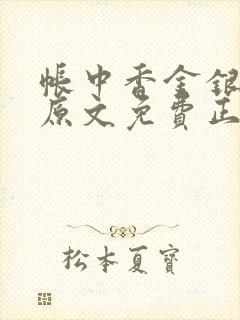 帳中香金銀
原文免費正
松本夏寶